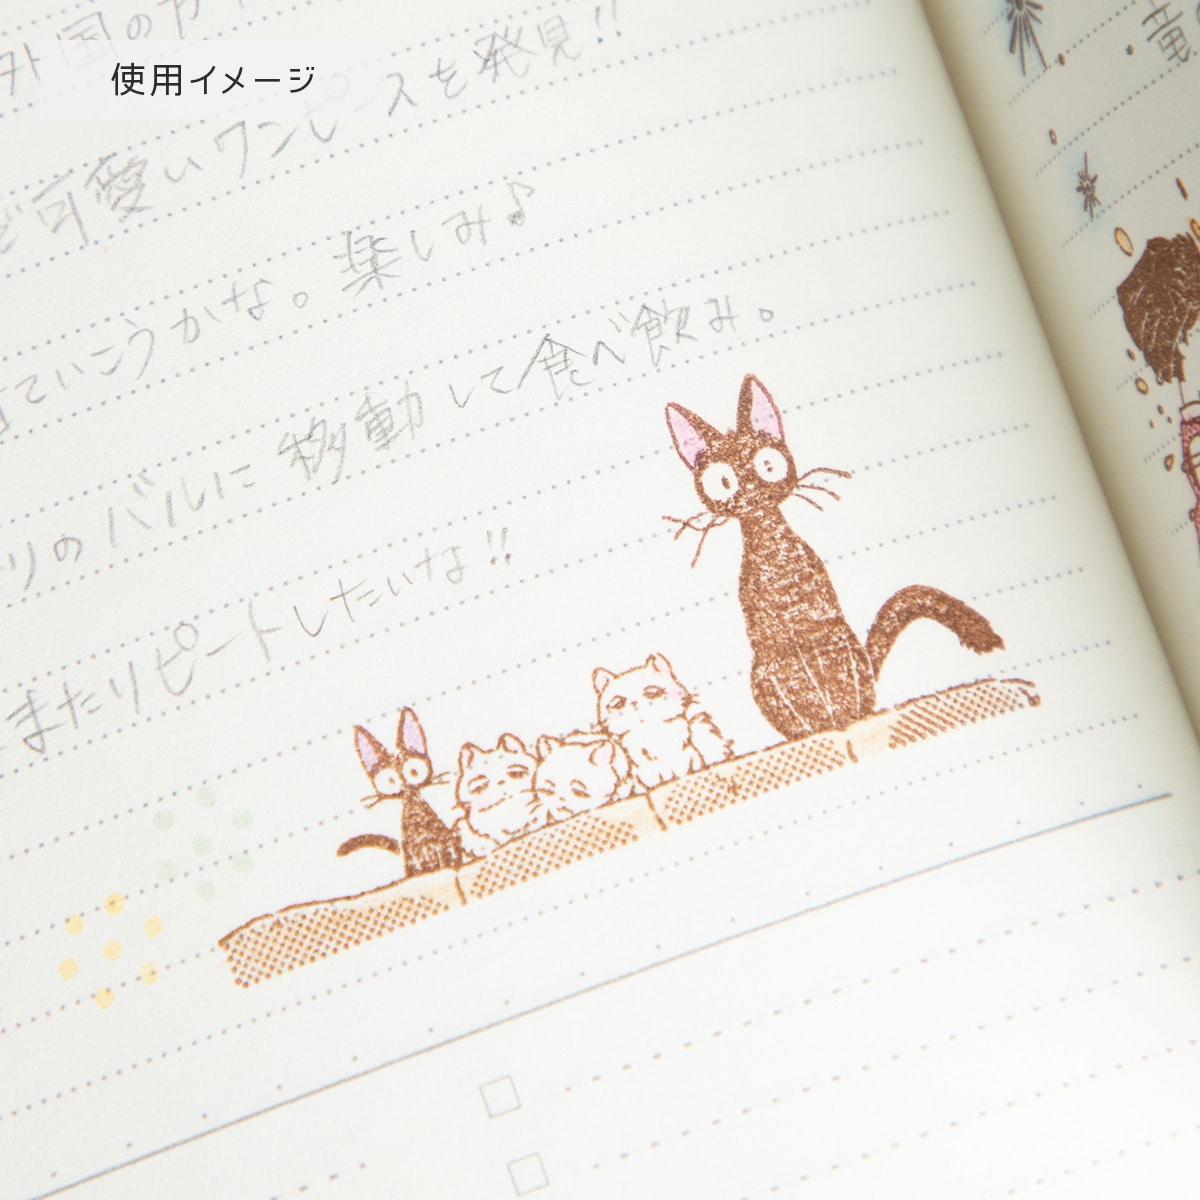 使用イメージ
外国の
可愛いワンピースを発見!!
ていこうかな。楽しみ♪
りのバルに移動して食べ飲み。
またリピートしたいな!!